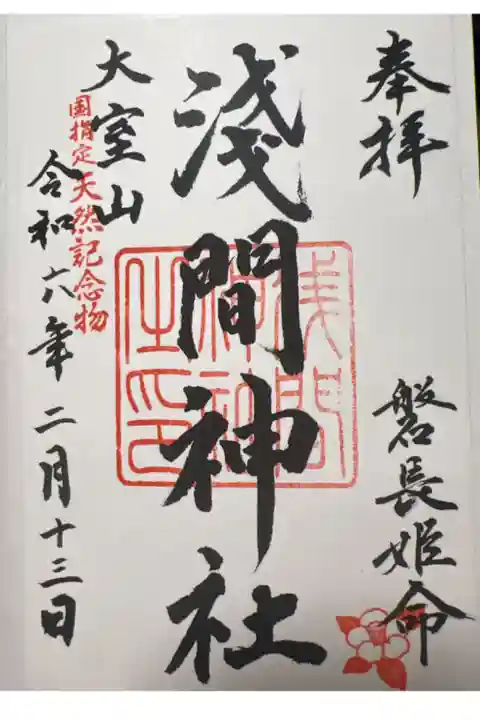 奉拝
磐長姫命
浅間神社
浅間
神社
之印
大室山
国指定天然記念物
令和六年二月十三日